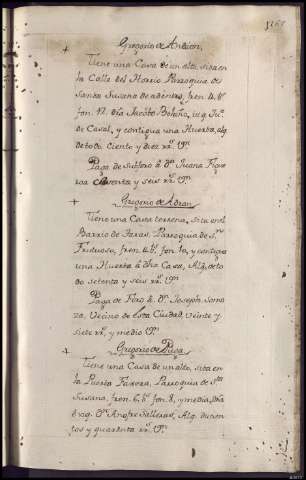 Gregorio de Andion,
Tiene una Casa de un alto, sita en
la Calle del Horrio Parroquia de
Santa Susana de adentro, fren. 4. v.s
fon. 12. Dra Jacobo Bolaño, izq. Ju.o
de Casal, y contigua una Huerta, alq.
de todo Ciento y diez rr.s v.on
Paga de Subforo à D.a Juana Figue
roa Cinquenta y seis rr.s v.on
Gregorio de Adran
Tiene una Casa terrena, sita en el
Barrio de Faxas, Parroquia de S.n
Frutuoso, fren. 6. v.s fon. 10, y contigua
una Huerta à dha Casa, Alq. de to
do setenta y seis rr.s v.on
Paga de Foro à D.n Joseph Somo
za, Vecino de esta Ciudad, veinte y
siete rr.s y medio v.on
Gregorio de Puga
Tiene una Casa de un alto, sita en
la Puerta Faxera, Parroquia de S.ta
Susana, fren. 6. v.s fon. 8, y media, Dra
è izq. D.n Onofre Selleras, Alq. ducien
tos y quarenta rr.s v.on